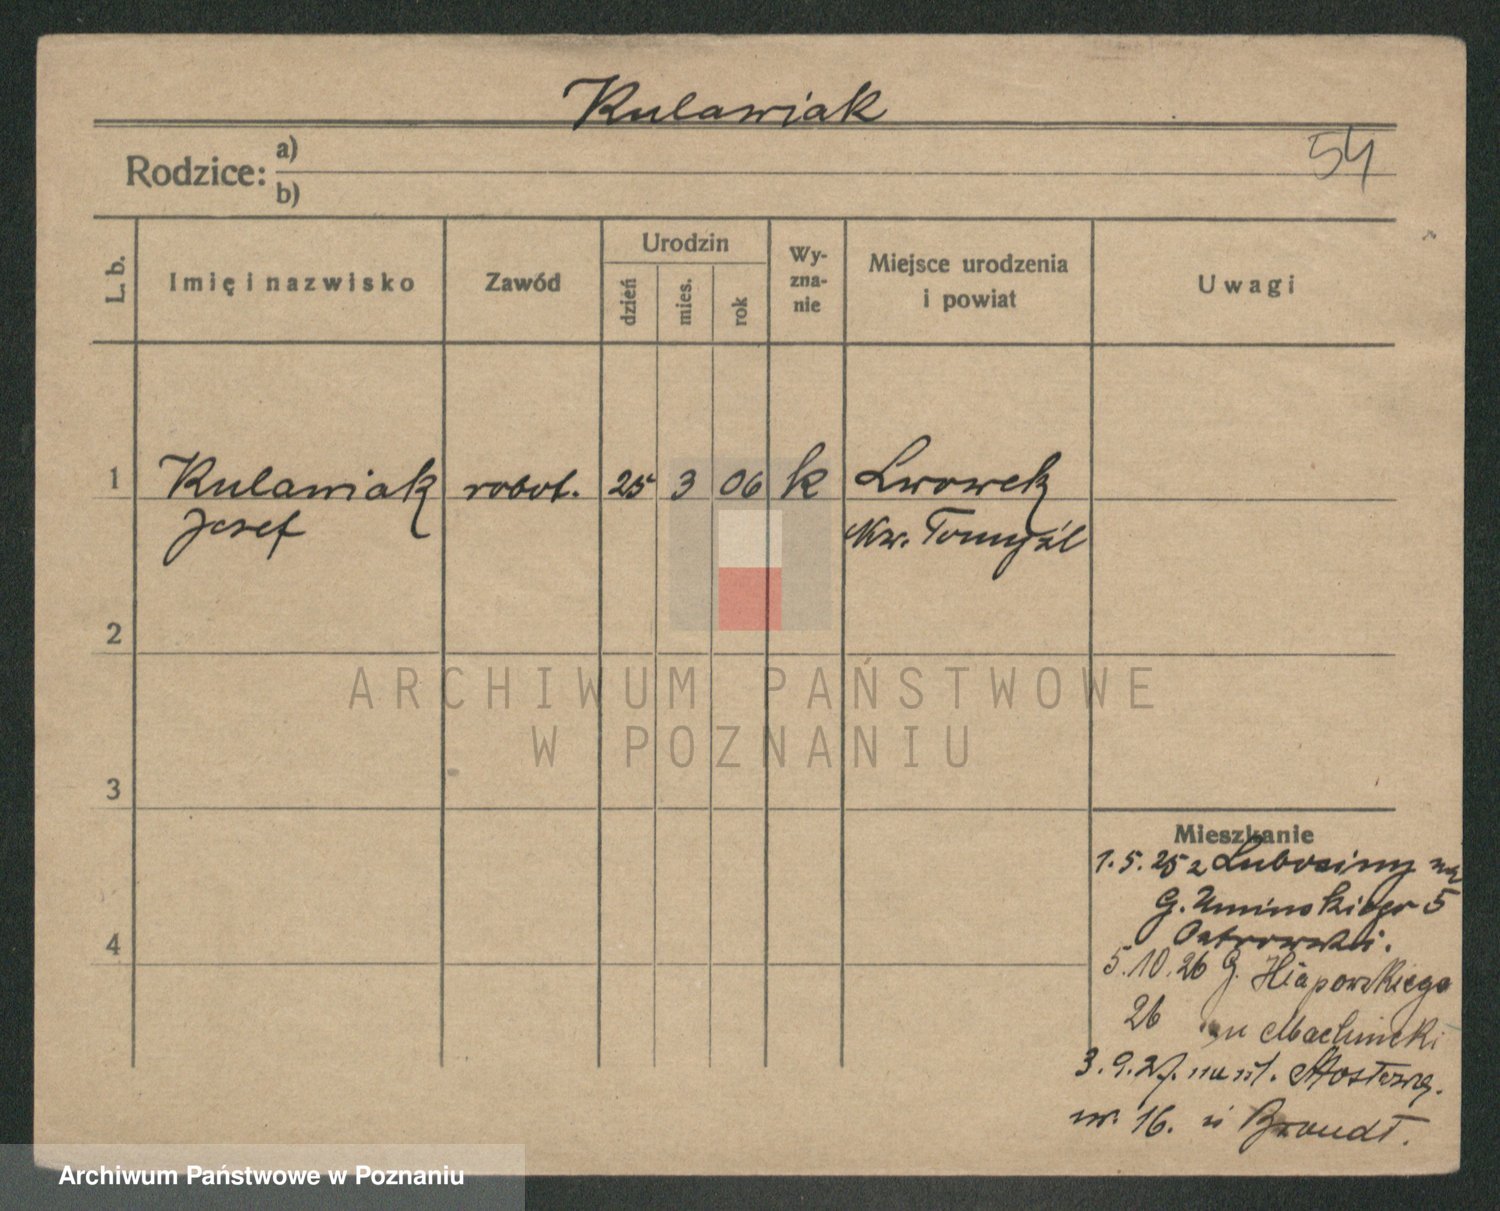 Kulawiak
54
Rodzice: a)
b)
L. b.
Imię i nazwisko
Zawód
Urodzin
dzień
mies.
rok
Wy-
zna-
nie
Miejsce urodzenia
i powiat
Uwagi
1
Kulawiak robot. 25 3 06 k Lwowek
Josef Nw. Tomyśl
2
ARCHIWUM PAŃSTWOWE
W POZNANIU
3
Mieszkanie
1.5.25 z Lubosiny na
G. Umińskiego 5
Ostrowski.
5.10.26 G. Hłapowskiego
26 Machnicki
4
3.9.27. na ul. Mostową.
nr. 16. u Brandt.
Archiwum Państwowe w Poznaniu